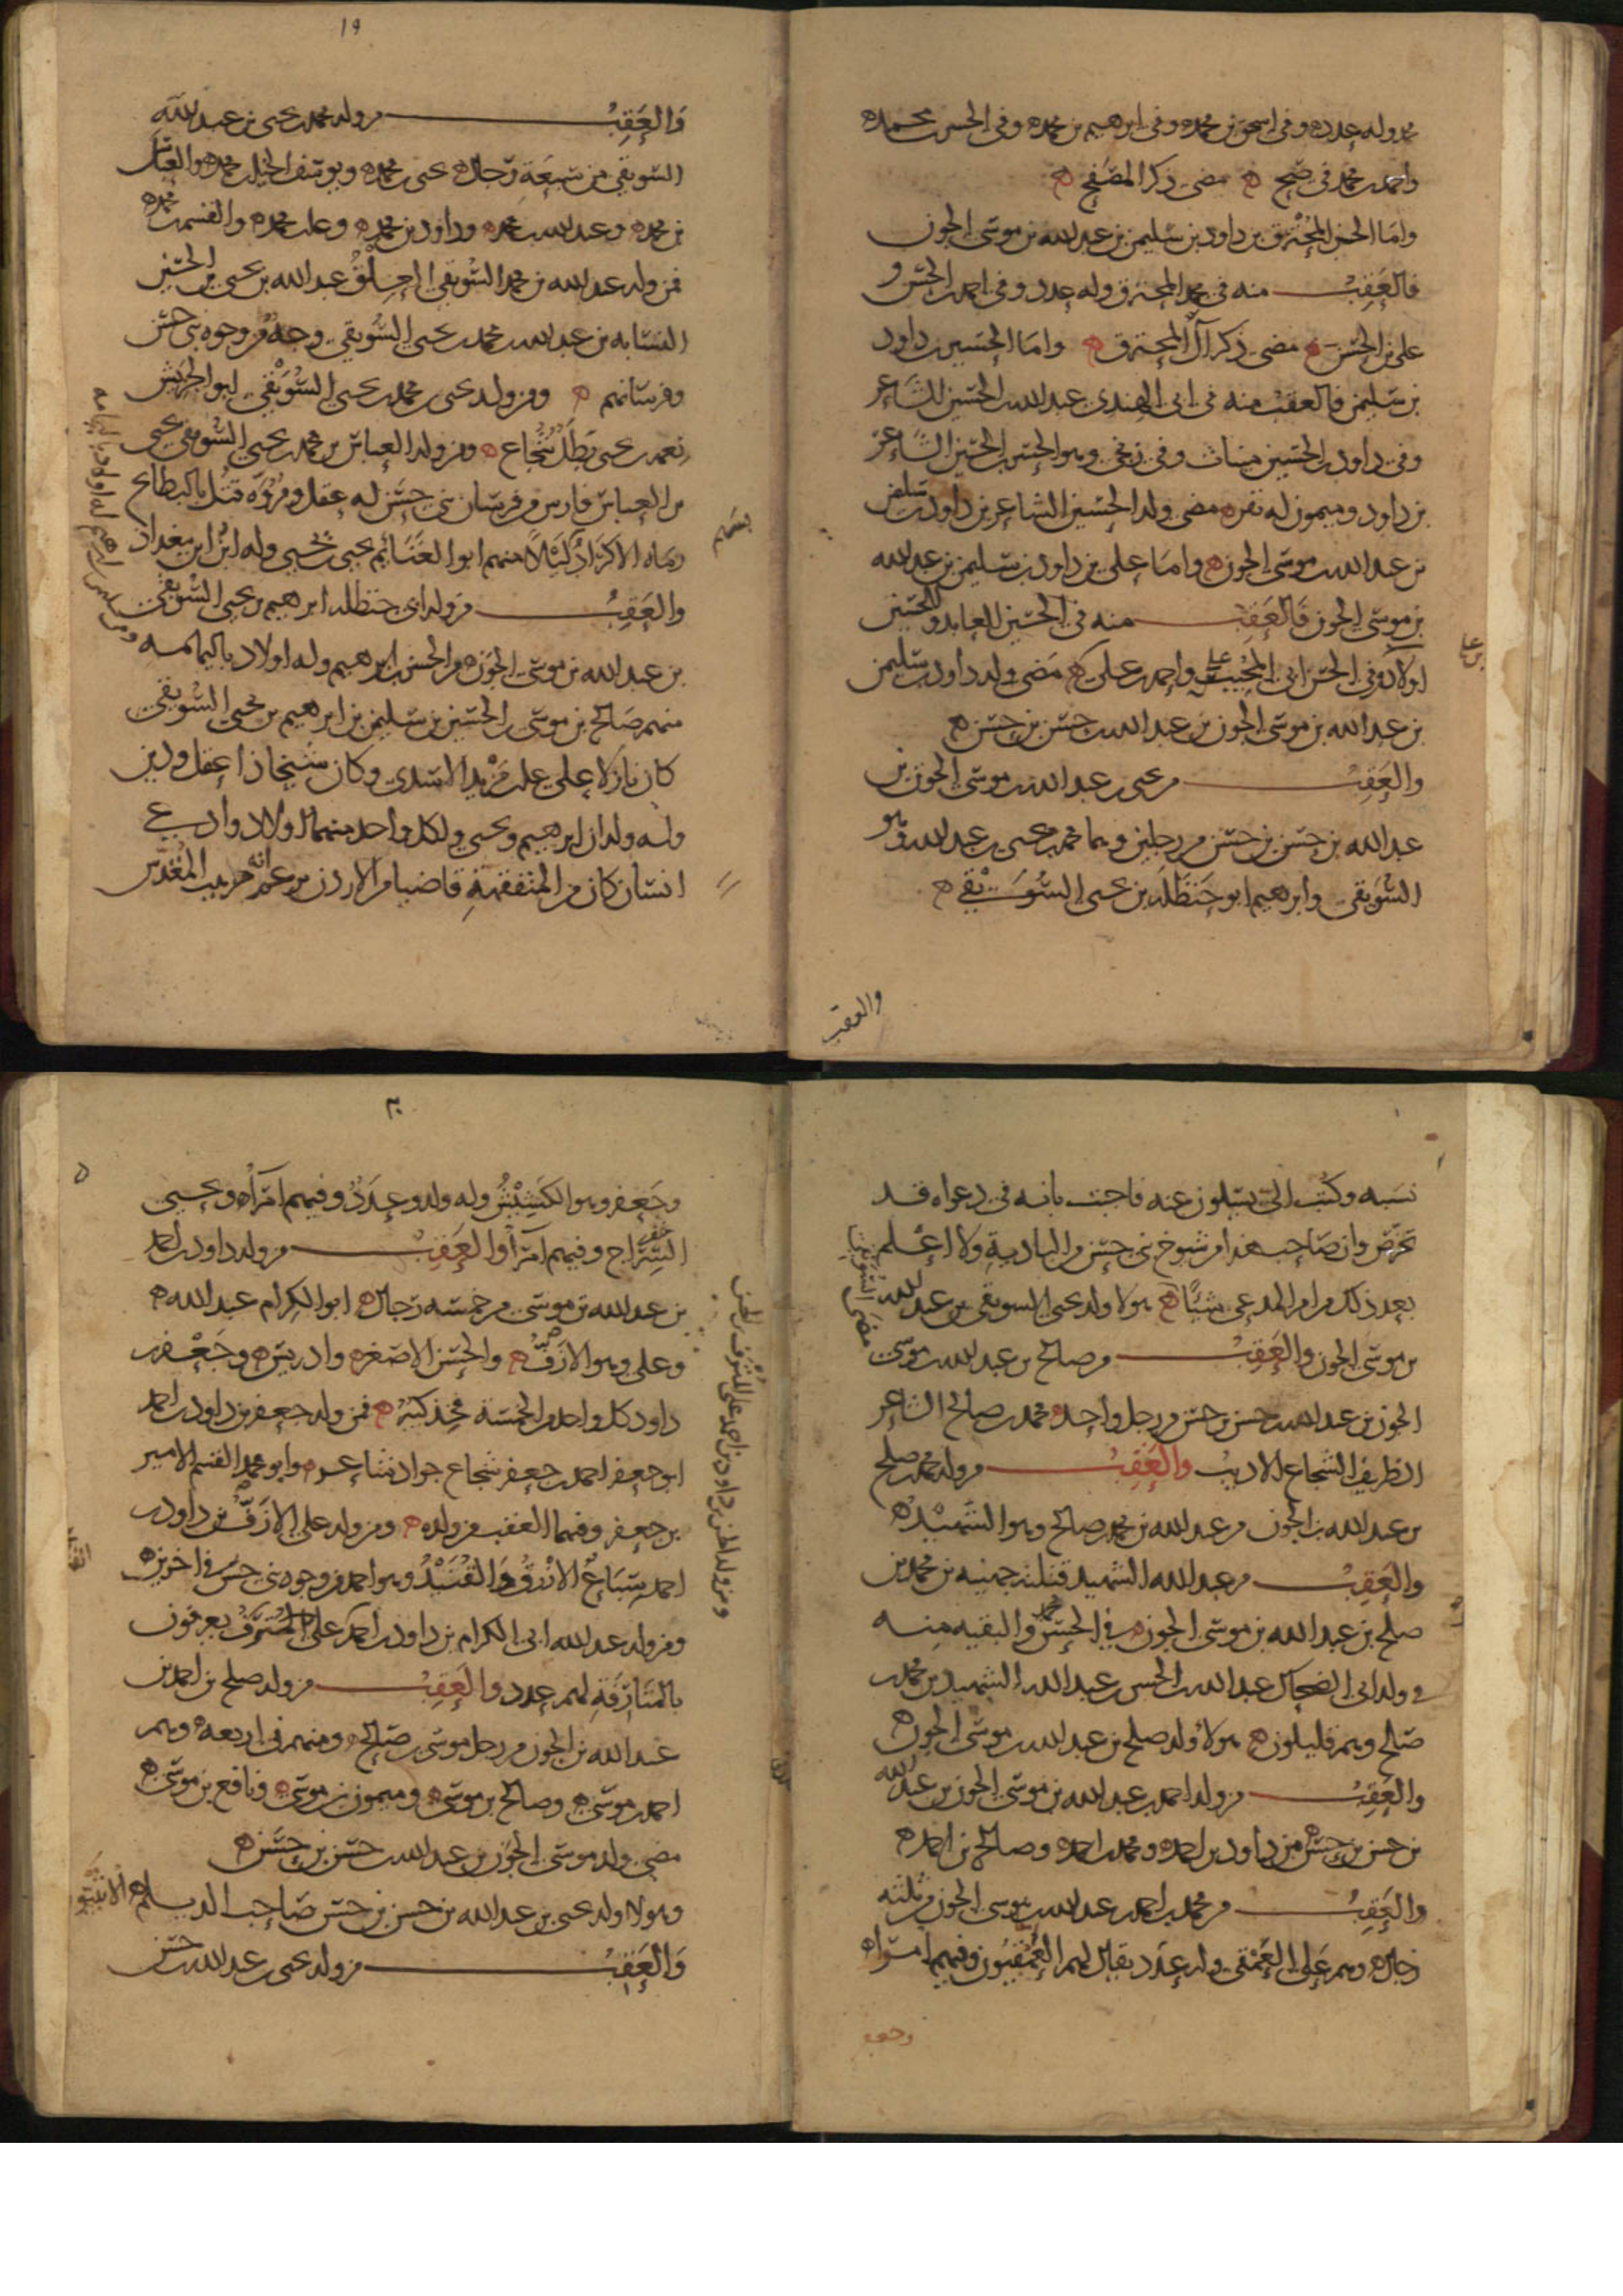 محمد وله عدد ه وفى اسحق بن محمد ه وفى ابرهيم بن محمد ه وفى الحسن بن محمد ه
واحمد بن محمد فى صح ه مضى ذكر المصفح ه
واما الحسن المحترق بن داود بن سليمن بن عبد الله بن موسى الجون
فالعقب منه فى محمد المحترق وله عدد وفى احمد بن الحسن و
على بن الحسن ه مضى ذكر آل المحترق ه واما الحسين بن داود
بن سليمن فالعقب منه فى ابى الهندى عبد الله بن الحسين الشاعر
وفى داود بن الحسين ميناث وفى وهو الحسن بن الحسين الشاعر
بن داود وميمون له نفر ه مضى ولد الحسين الشاعر بن داود بن سليمن
بن عبد الله بن موسى الجون ه واما على بن داود بن سليمن بن عبد الله
بن موسى الجون فالعقب منه فى الحسين العابد وللحسين
اولاد وفى الحسن ابى المجيب بن على واحمد بن على ه مضى ولد داود بن سليمن
بن عبد الله بن موسى الجون بن عبد الله بن حسن بن حسن ه
والعقب من يحيى بن عبد الله بن موسى الجون بن
عبد الله بن حسن بن حسن من رجلين وهما محمد بن يحيى بن عبد الله وهو
السويقى وابرهيم ابو حنظلة بن يحيى السويقى ه
والعقب
١٩
والعقب من ولد محمد بن يحيى بن عبد الله
السويقى من سبعة رجال ه يحيى بن محمد ه ويوسف الخيل بن محمد ه والعباس
بن محمد ه وعبد الله بن محمد ه وداود بن محمد ه وعلى بن محمد ه والقسم بن محمد ه
فمن ولد عبد الله بن محمد السويقى عبد الله بن يحيى بن الحسين
النسابه بن عبد الله بن محمد بن يحيى السويقى وجه من وجوه بنى حسن
وفرسانهم ه ومن ولد يحيى بن محمد بن يحيى السويقى ابو
بن يحيى بطل شجاع ه ومن ولد العباس بن محمد بن يحيى السويقى يحيى
بن العباس فارس من فرسان بنى حسن له عقل ومروه قتل بالبطايح
رماه الاكراد ليلا منهم ابو الغنايم يحيى بن يحيى وله ابن ابن ببغداد
والعقب من ولد ابى حنظلة ابرهيم بن يحيى السويقى
بن عبد الله بن موسى الجون ه من الحسن بن ابرهيم وله اولاد باليمامه
منهم صالح بن موسى بن الحسين بن سليمن بن ابرهيم بن يحيى السويقى
كان نازلا على على بن مزيد الاسدى وكان شيخا ذا عقل ودين
وله ولدان ابرهيم ويحيى ولكل واحد منهما اولاد وادعى
انسان كان من المتفقهة قاضيا من الاردن من عمل بيت المقدس
نسبه وكتب الى يسلون عنه فاجبت بانه فى دعواه قد
تخرص وان صاحب هذا من شيوخ بنى حسن من البادية ولا اعلم
بعد ذلك من امر المدعى شيئا ه هولا ولد يحيى السويقى بن عبد الله
بن موسى الجون والعقب من صالح بن عبد الله بن موسى
الجون بن عبد الله بن حسن بن حسن من رجل واحد ه محمد بن صالح الشاعر
الظريف الشجاع الاديب والعقب من ولد محمد بن صلح
بن عبد الله بن الجون من عبد الله بن محمد بن صالح وهو الشهيد ه
والعقب من عبد الله الشهيد قتلته جهينه بن محمد بن
صلح بن عبد الله بن موسى الجون ه فى الحسن والبقيه منه
فى ولد ابى الضحاك عبد الله بن الحسن بن عبد الله الشهيد بن محمد بن
صالح وهم قليلون ه هولاء ولد صلح بن عبد الله بن موسى الجون ه
والعقب من ولد احمد بن عبد الله بن موسى الجون بن عبد الله
بن حسن بن حسن ه من داود بن احمد ه ومحمد بن احمد ه وصالح بن احمد ه
والعقب من محمد بن احمد بن عبد الله بن موسى الجون من ثلثه
رجال ه وهم على العمقى وله عدد يقال لهم العمقيون وفيهم امراه
وجعفر
٢٠
وجعفر وهو الكشيش وله ولد وعدد وفيهم امرآه ه ويحيى
السراج وفيهم امرآ والعقب من ولد داود بن احمد
بن عبد الله بن موسى من خمسه رجال ه ابو الكرام عبد الله ه
وعلى وهو الازرق ه والحسن الاصغر ه وادريس ه وجعفر بن
داود كل واحد من الخمسة فخذ كبير ه فمن ولد جعفر بن داود بن احمد
ابو جعفر احمد بن جعفر شجاع جواد شاعر ه وابو محمد القسم الامير
بن جعفر وفيهما العقب من ولده ه ومن ولد على الازرق بن داود بن
احمد سباع الازرق وهو احمد من وجوه بنى حسن فى اخرين ه
ومن ولد عبد الله ابى الكرام بن داود بن احمد على المترف يعرفون
بالمتارفة لهم عدد والعقب من ولد صلح بن احمد بن
عبد الله بن الجون من رجل موسى بن صالح ه ومنهم فى اربعه وهم
احمد بن موسى ه وصالح بن موسى ه وميمون بن موسى ه ونافع بن موسى ه
مضى ولد موسى الجون بن عبد الله بن حسن بن حسن ه
وهولا ولد يحيى بن عبد الله بن حسن بن حسن صاحب الديلم ه
والعقب من ولد يحيى بن عبد الله بن حسن